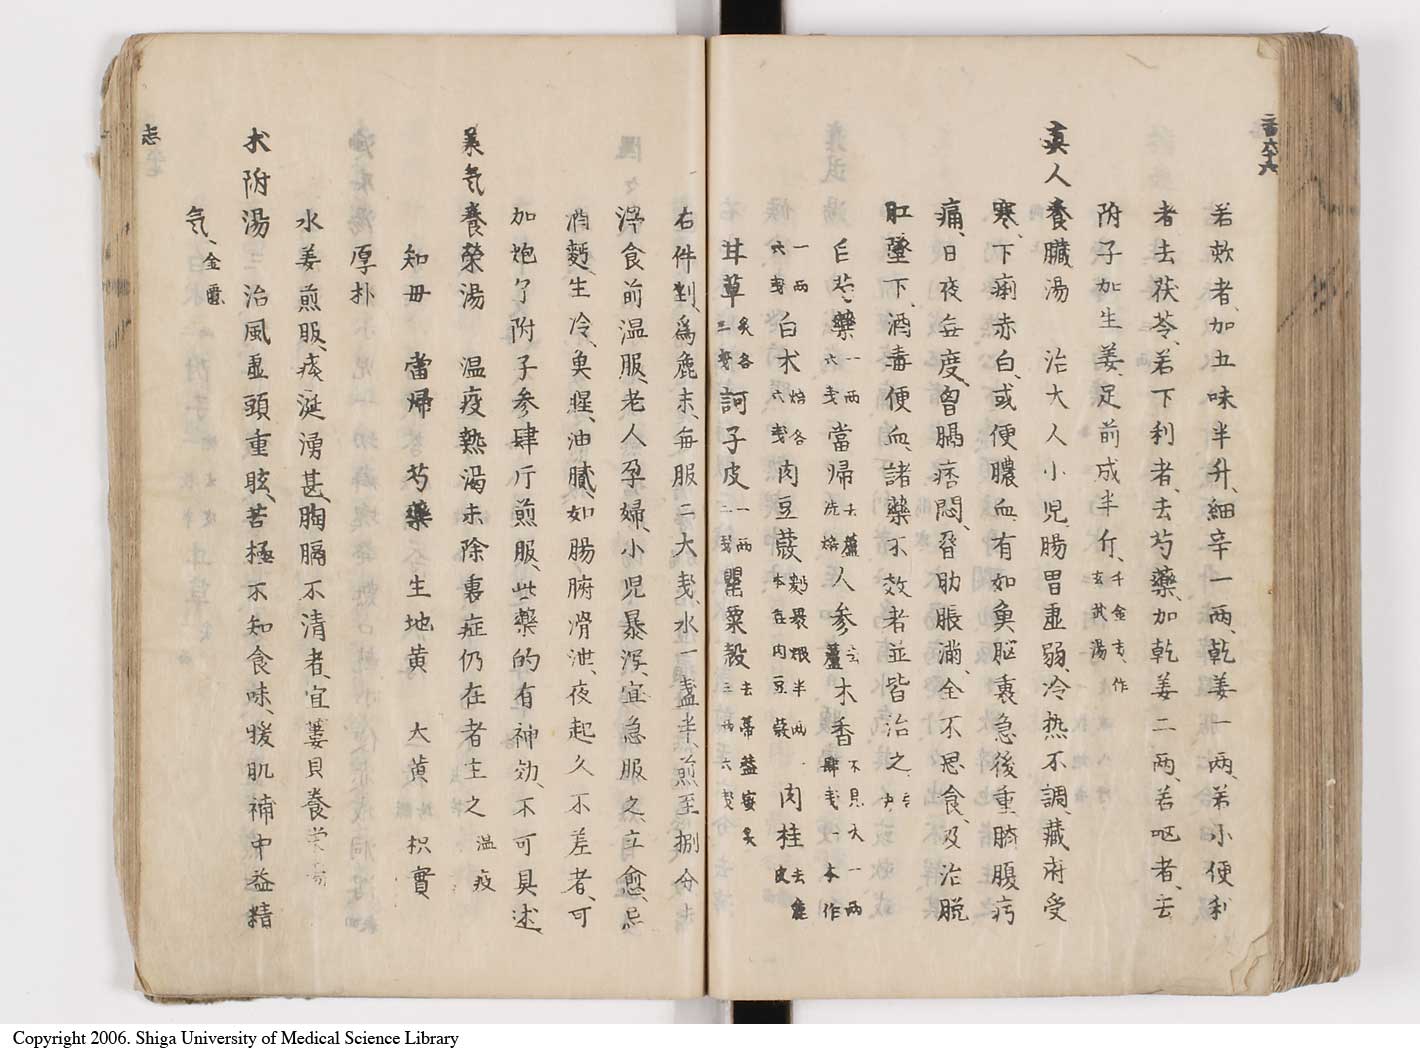 若欬者、加五味半升、細辛一両、乾姜一両、若小便利
者去茯苓、若下利者、去芍藥、加乾姜二両、若呕者、去
附子加生姜、足前成半斤、千金玄武湯
真人養臓湯 治大人小児腸胃虚弱、冷热不調、藏府受
寒、下痢赤白、或便膿血、有如魚脳、裏急後重、臍腹㽲
痛、日夜無度、胷膈痞悶、脅肋脹満、全不思食、及治脱
肛墜下、酒毒便血、諸藥不效者並皆治之、
白芍藥 一両六戔 當帰 去蘆洗焙 人参 去蘆 木香 不見火一両肆戔一本作一両
六戔 白术 焙各六戔 肉豆蔲 麪裹煨半両一本在肉豆蔲 肉桂 去麁皮
甘草 炙各三戔 訶子皮 一両二戔 罌粟殻 去蒂蓋蜜炙三両六戔
右件剉、為麁末、每服二大戔、水一盞半、煎至捌分去
滓食前温服、老人孕婦、小児暴泻、宜急服之立愈、忌
酒麪、生冷、魚腥、油膩、如腸腑滑泄、夜起久不差者、可
加炮了附子参肆斤煎服、此藥的有神効、不可具述、
養榮湯 温疫熱渇未除裏症仍在者主之 温疫
知毋 當帰 芍藥 生地黄 大黄 枳實
厚朴
水姜煎服、痰涎湧甚、胸膈不清者、宜蔞貝養荣湯
术附湯 治風虚頭重眩、苦極不知食味、暖肌補中益精
気、金匱
志